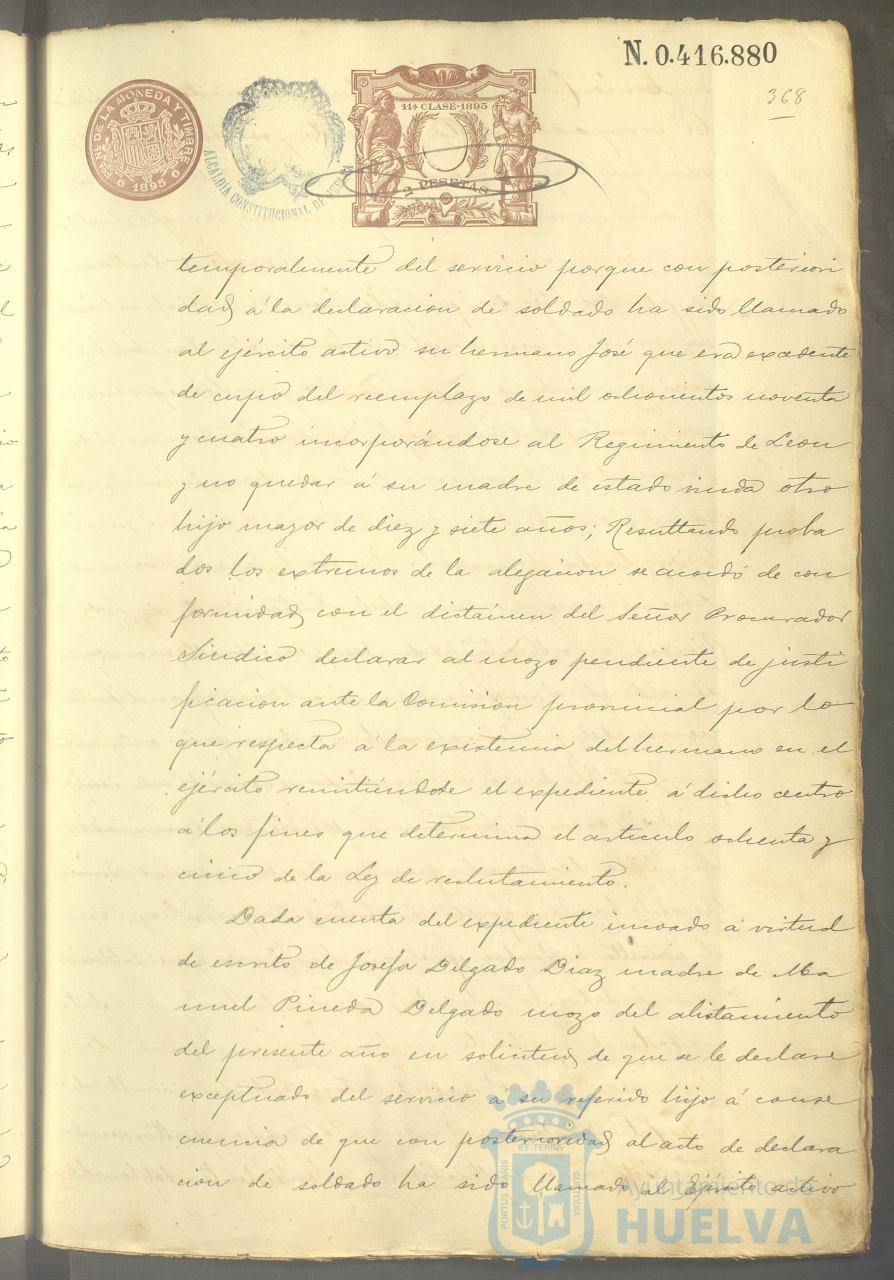 N. 0.416.880
368
FAB. N. DE LA MONEDA Y TIMBRE
1895
ALCALDIA CONSTITUCIONAL DE HUELVA
11ª CLASE·1895
2 PESETAS
temporalmente del servicio porque con posteriori
dad á la declaracion de soldado ha sido llamado
al ejército activo su hermano José que era excedente
de cupo del reemplazo de mil ochocientos noventa
y cuatro incorporándose al Regimiento de Leon
y no quedar á su madre de estado viuda otro
hijo mayor de diez y siete años; Resultando proba
dos los extremos de la alegacion se acordó de con
formidad con el dictámen del Señor Procurador
Sindico declarar al mozo pendiente de justi
ficacion ante la Comision provincial por lo
que respecta á la existencia del hermano en el
ejército remitiéndose el expediente á dicho centro
á los fines que determina el articulo ochenta y
cinco de la Ley de reclutamiento.
Dada cuenta del expediente incoado á virtud
de escrito de Josefa Delgado Diaz madre de Ma
nuel Pineda Delgado mozo del alistamiento
del presente año en solicitud de que se le declare
exceptuado del servicio a su referido hijo á conse
cuencia de que con posterioridad al acto de declara
cion de soldado ha sido llamado al Ejército activo
ET TERRÆ
PORTUS MARIS
CUSTODIA
Ayuntamiento de
HUELVA